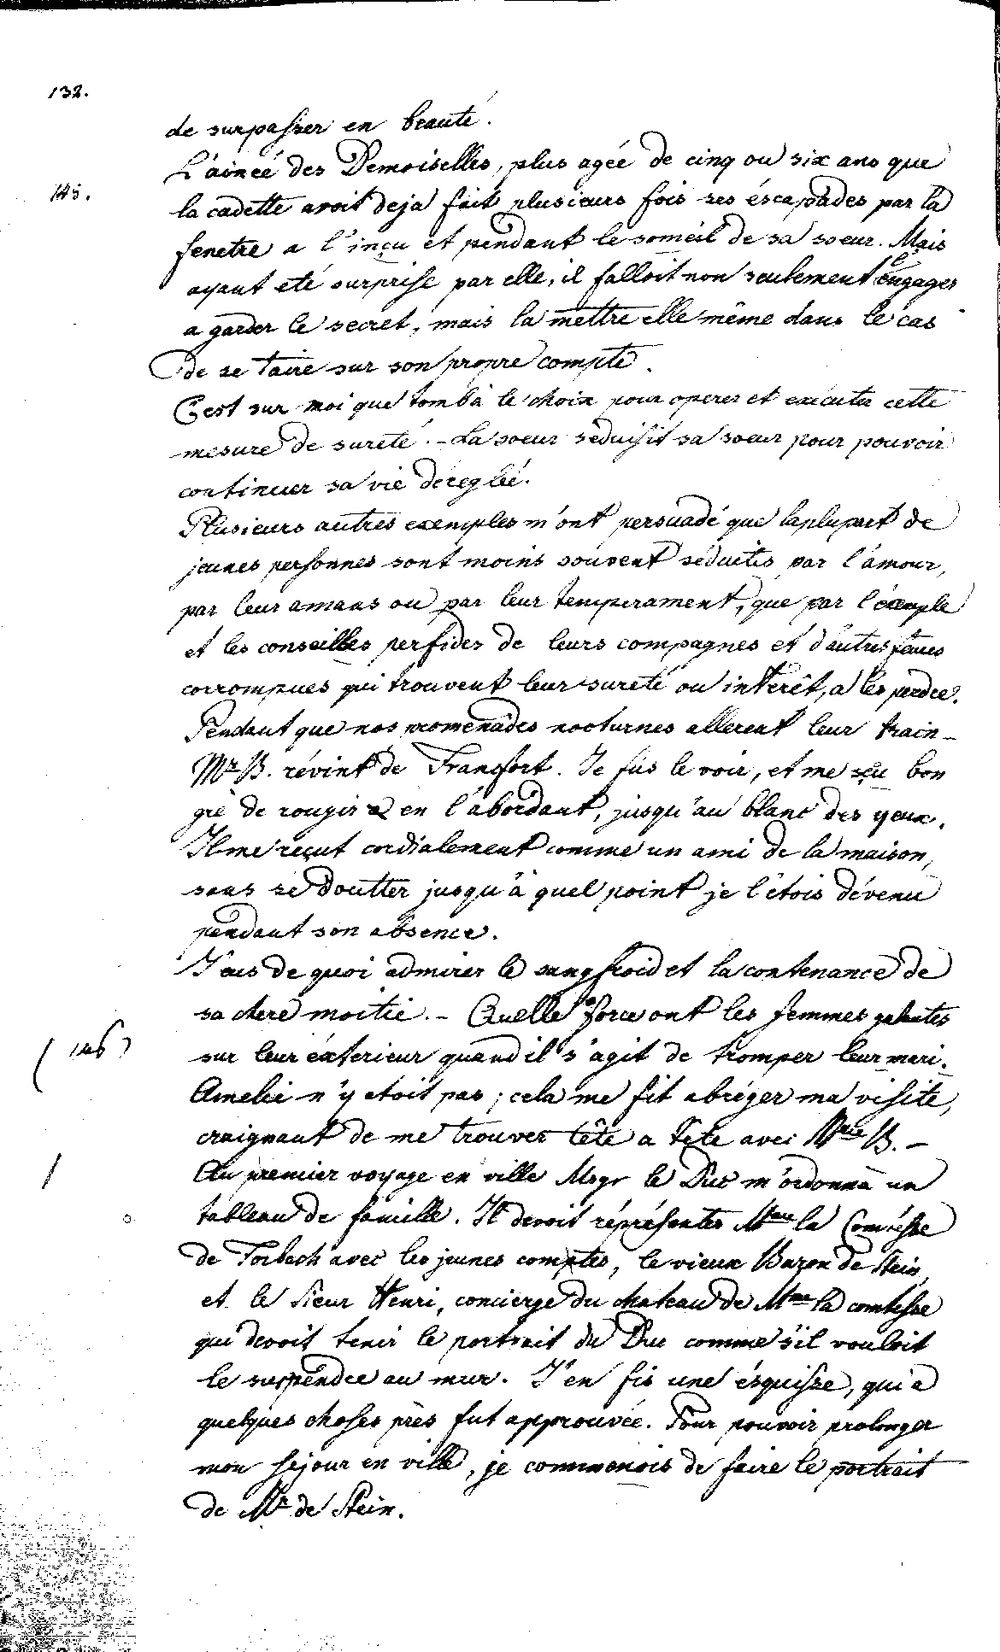 132.
de surpasser en beauté.
L'ainée des Demoiselles, plus agée de cinq ou six ans que
145.
la cadette avoit deja fait plusieurs fois ses éscapades par la
fenetre a l'inçu et pendant le someil de sa soeur. Mais
ayant eté surprise par elle, il falloit non seulement l'engager
a garder le secret, mais la mettre elle même dans le cas
de se taire sur son propre compte.
C'est sur moi que tomba le choix pour operer et executer cette
mesure de sureté. – La soeur seduisit sa soeur pour pouvoir
continuer sa vie déreglée.
Plusieurs autres exemples m'ont persuadé que la plupart de
jeunes personnes sont moins souvent séduites par l'amour,
par leur amans ou par leur temperament, que par l'exemple
et les conseilles perfides de leurs compagnes et d'autres femes
corrompues qui trouvent leur sureté ou intérêt, a les perdre.
Pendant que nos promenades nocturnes allerent leur train –
Mr B. révint de Francfort. Je fus le voir, et me sçu bon
gré de rougir en l'abordant, jusqu'au blanc des yeux.
Il me reçut cordialement comme un ami de la maison,
sans se doutter jusqu'à quel point je l'étois dévenu
pendant son absence.
J'eus de quoi admirer le sangfroid et la contenance de
sa chere moitié. – Quelle force ont les femmes galantes
(146)
sur leur éxterieur quand il s'agit de tromper leur mari.
Amelie n'y etoit pas; cela me fit abréger ma visite,
craignant de me trouver tête a tete avec Mme B. –
Au premier voyage en ville Msgr le Duc m'ordonna un
tableau de famille. Il devoit réprésenter Mme la Comtesse
de Forbach avec les jeunes comptes, le vieux Baron de Stein,
et le Sieur Henri, concierge du chateau de Mme la comtesse
qui devoit tenir le portrait du Duc comme s'il vouloit
le suspendre au mur. J'en fis une ésquisse, qui a
quelques choses près fut approuvée. Pour pouvoir prolonger
mon sejour en ville, je commencois de faire le portrait
de Mr de Stein.